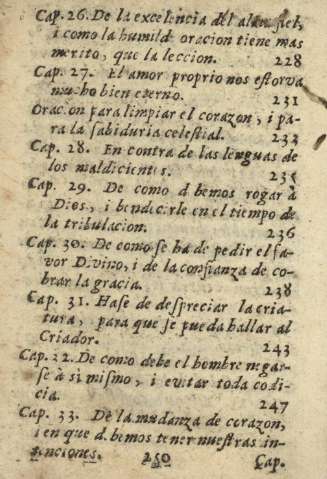 Cap. 26. De la excelencia del alma fiel,
i como la humilde oracion tiene mas
merito, que la leccion. 228
Cap. 27. El amor proprio nos estorva
mucho bien eterno. 231
Oracion para limpiar el corazon, i pa-
ra la sabiduria celestial. 233
Cap. 28. En contra de las lenguas de
los maldicientes. 235
Cap. 29. De como d bemos rogar à
Dios, i bendecirle en el tiempo de
la tribulacion. 236
Cap. 30. De como se ha de pedir el fa-
vor Divino, i de la confianza de co-
brar la gracia. 238
Cap. 31. Hase de despreciar la cria-
tura, para que se pueda hallar al
Criador. 243
Cap. 32. De como debe el hombre negar-
se à si mismo, i evitar toda codi-
cia. 247
Cap. 33. De la mudanza de corazon,
i en que d bemos tener nuestras in-
tenciones. 250
Cap.